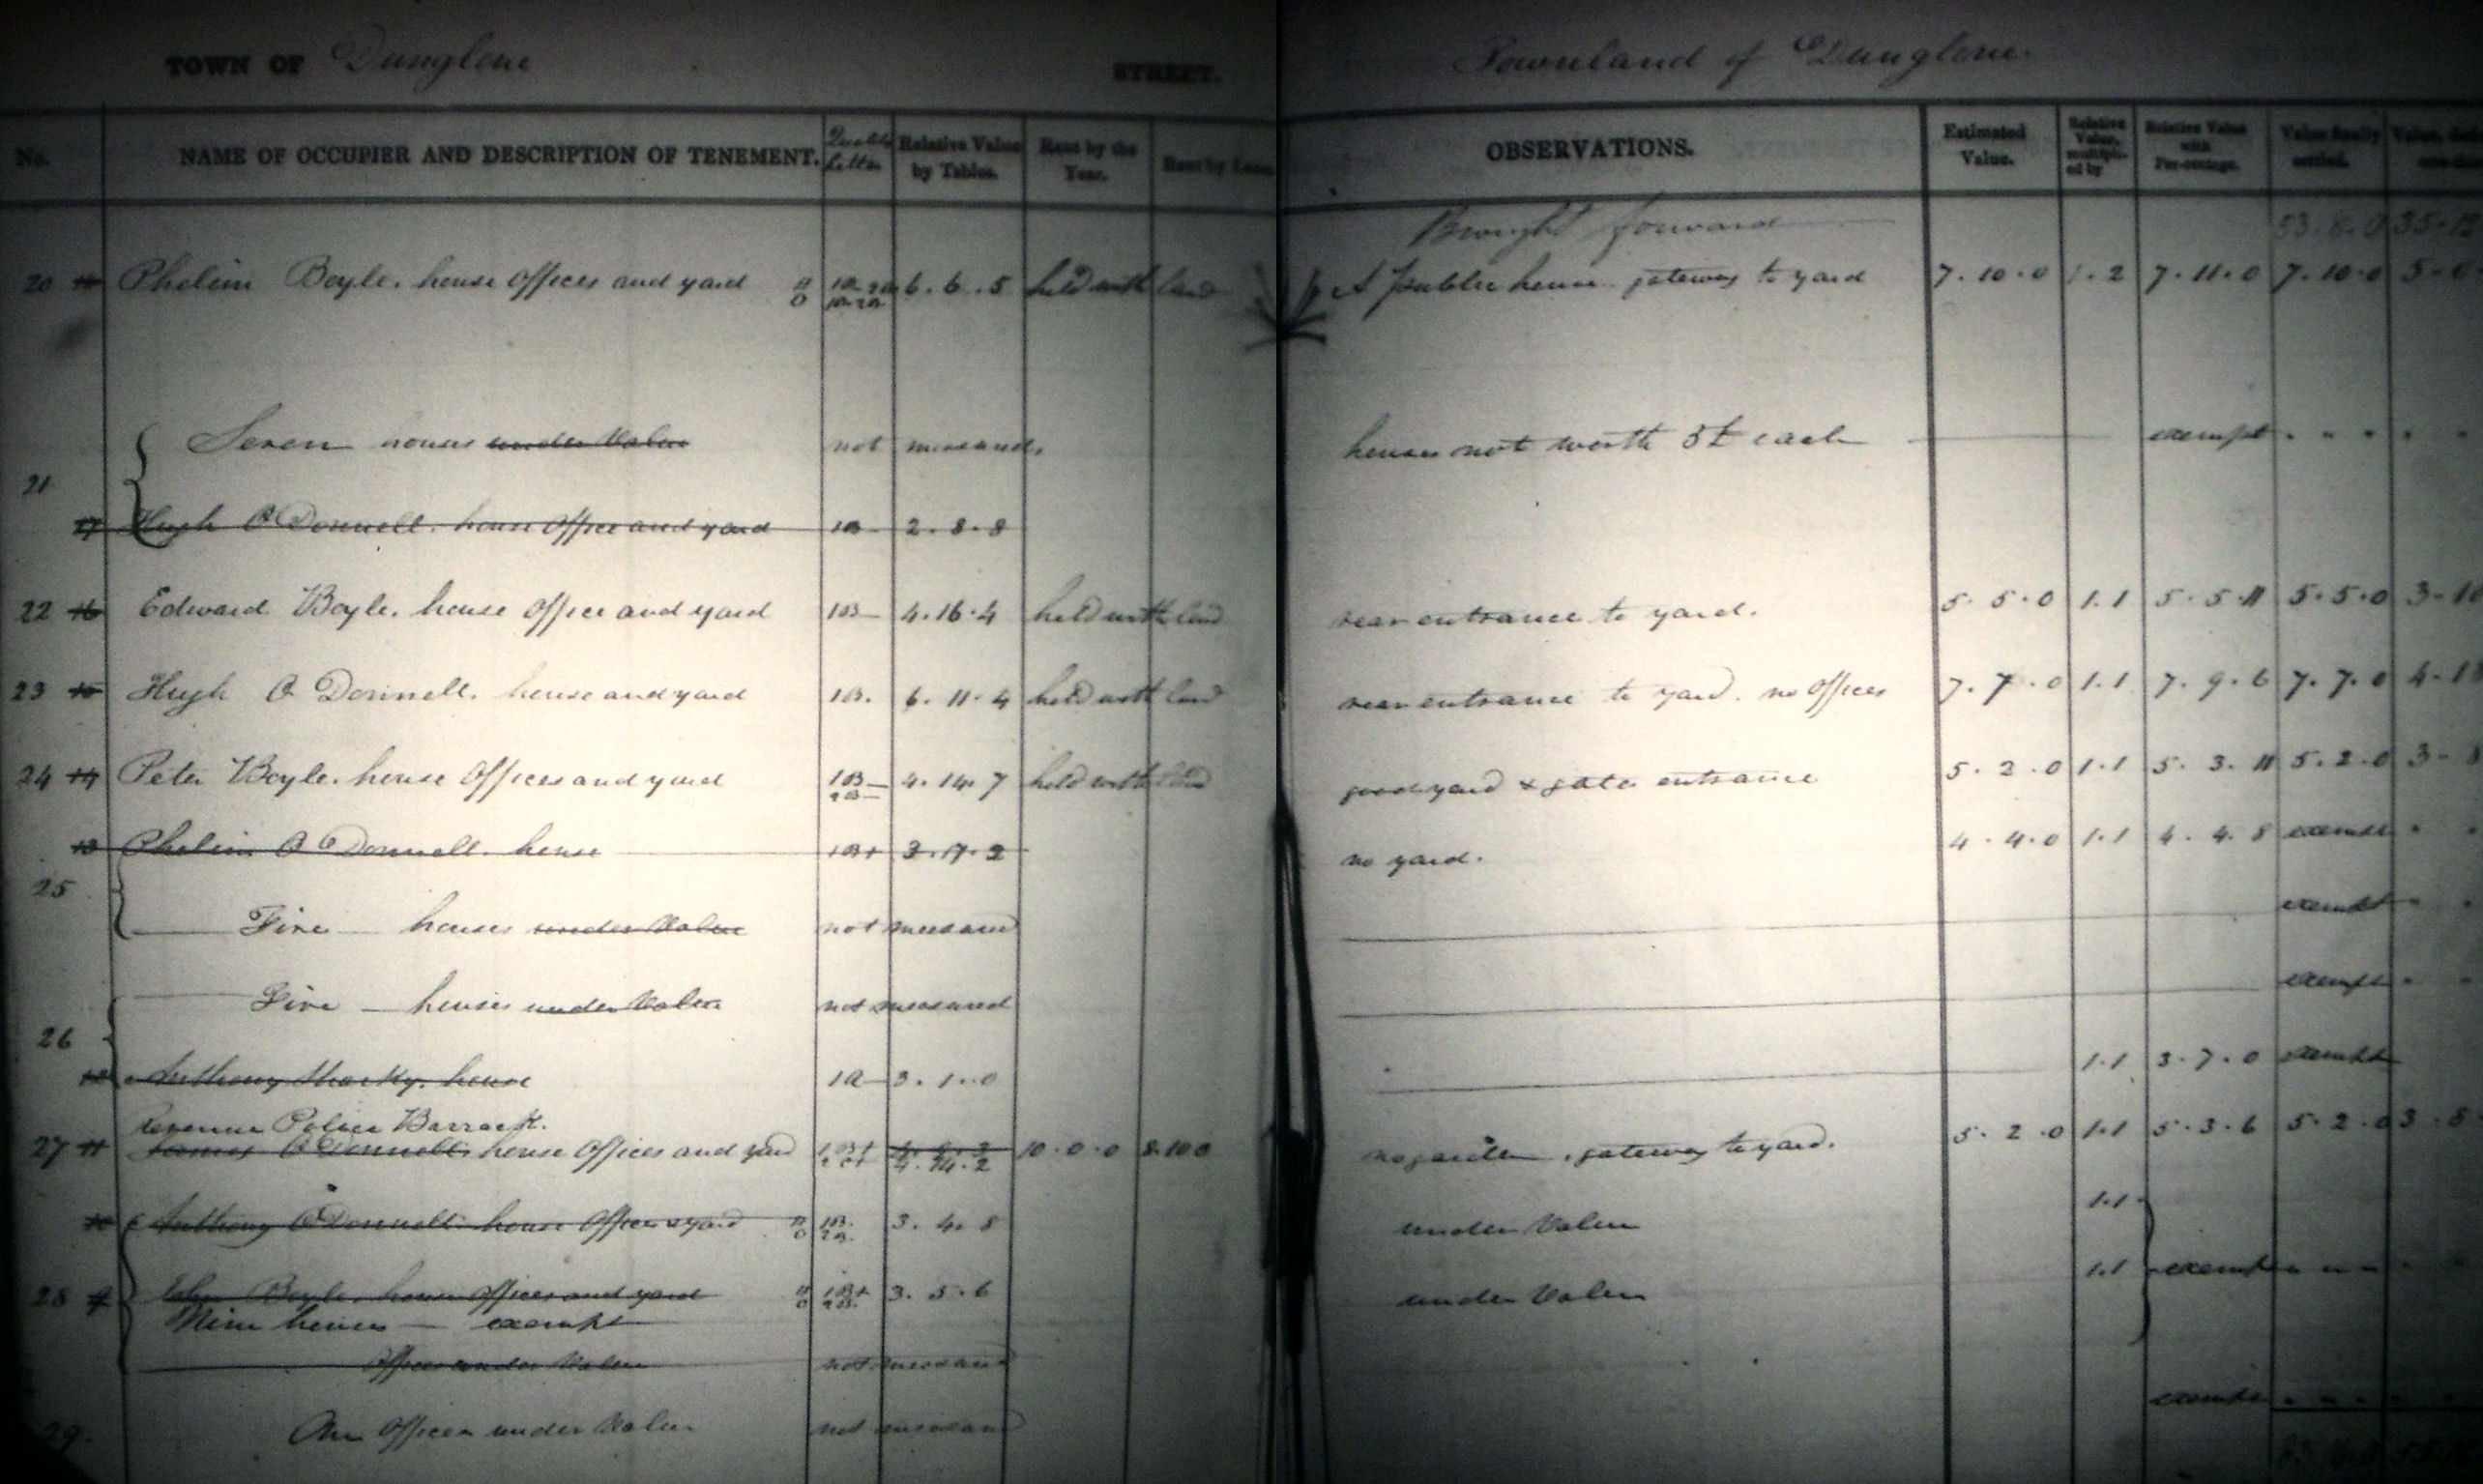 TOWN OF Dunglone STREET.
No. NAME OF OCCUPIER AND DESCRIPTION OF TENEMENT. Quality Letter Relative Value by Tables. Rent by the Year. Rent by Lease
20 Phelim Boyle. house offices and yard 6. 6. 5 held with land
Seven houses under Value not measured.
21
17 Hugh O Donnell. house office and yard 1B 2. 8. 8
22 16 Edward Boyle. house office and yard 1B- 4. 16. 4 held with land
23 15 Hugh O Donnell. house and yard 1B. 6. 11. 4 held with land
24 14 Peter Boyle. house offices and yard 1B- 2B- 4. 14. 7 held with land
13 Phelim O Donnell. house 1B+ 3. 17. 2
25
Five houses under Value not measured
Five houses under Value not measured
26
Anthony house 1a- 3. 1. 0
Revenue Police Barrack.
27 11 James O Donnell. house offices and yard 4. 14. 2 10. 0. 0 8. 10 0
10 Anthony O Donnell house offices & yard H O 1B. 2B. 3. 4. 8
28 9 Boyle. house offices and yard H O 1B+ 2B. 3. 5. 6
Nine houses exempt
offices under Value not measured
29. offices under Value not measured
Townland of Dunglone.
OBSERVATIONS. Estimated Value. Relative Value, multiplied by Relative Value with Per-centage. Value finally settled. Value,
Brought forward 53. 6. 0 35. 12
A public house. gateway to yard 7. 10. 0 1. 2 7. 11. 0 7. 10. 0 5. 0
houses not worth 5£ each exempt
rear entrance to yard. 5. 5. 0 1. 1 5. 5. 11 5. 5. 0 3. 10
rear entrance to yard. no offices 7. 7. 0 1. 1 7. 9. 6 7. 7. 0 4. 18
good yard & gate entrance 5. 2. 0 1. 1 5. 3. 11 5. 2. 0 3. 8
no yard. 4. 4. 0 1. 1 4. 4. 8 exempt
exempt
exempt
1. 1 3. 7. 0 exempt
no garden, gateway to yard. 5. 2. 0 1. 1 5. 3. 6 5. 2. 0 3. 8
under Value 1. 1
under Value 1. 1 exempt
exempt